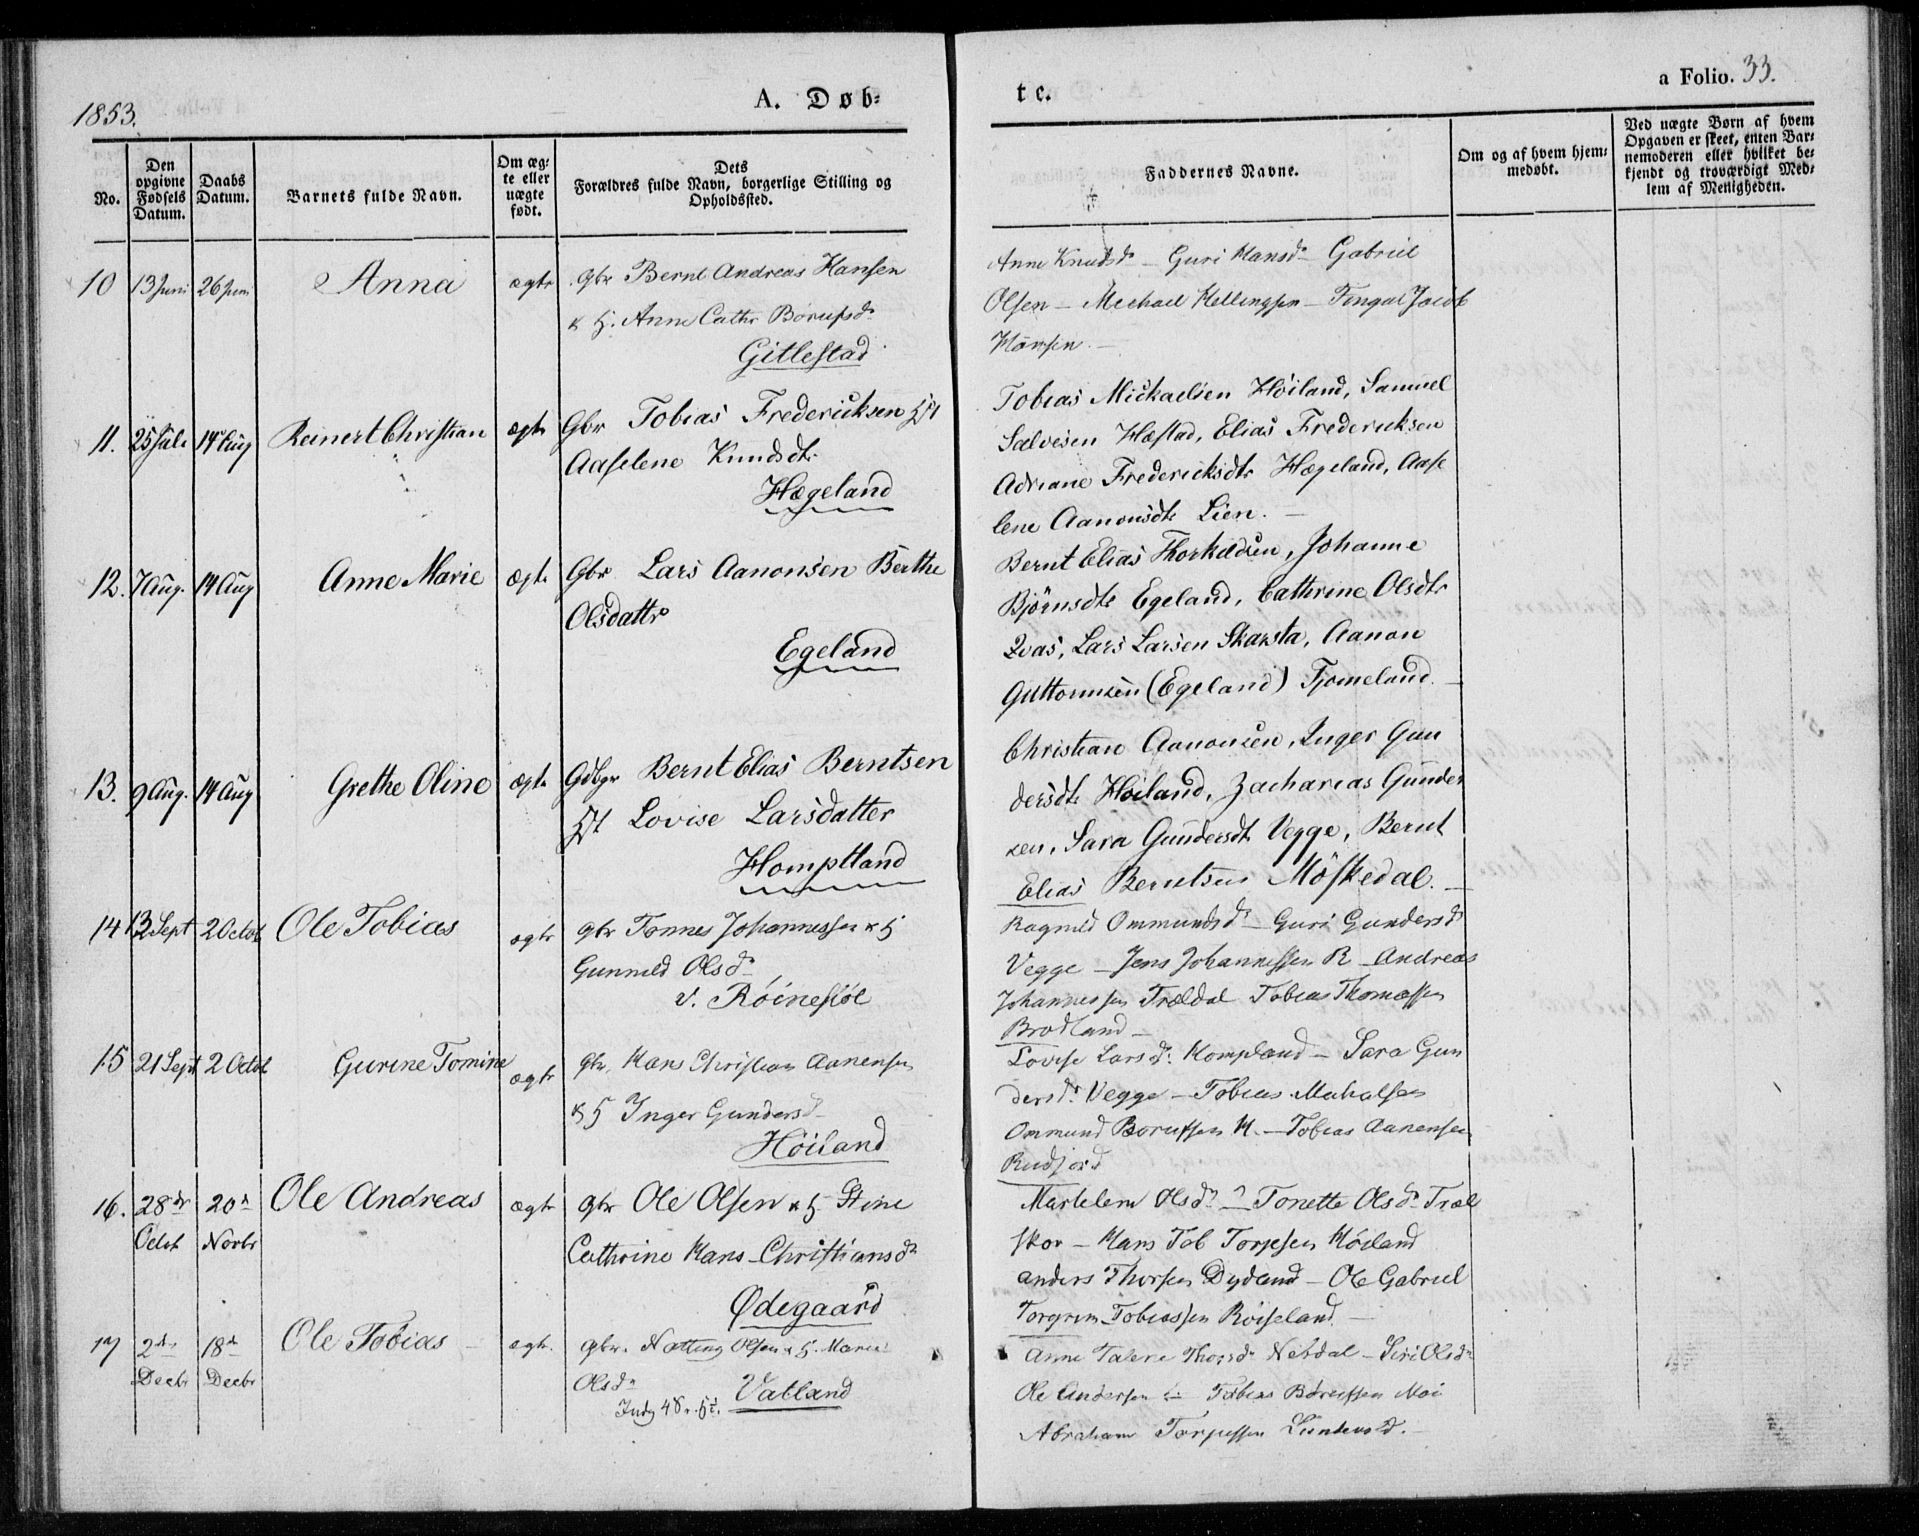 1853.
A. Døb-
te.
a Folio. 33.
No.
Den opgivne Fødsels Datum.
Daabs Datum.
Barnets fulde Navn.
Om ægte eller uægte født.
Dets Forældres fulde Navn, borgerlige Stilling og Opholdssted.
Faddernes Navne.
Om og af hvem hjemmedøbt.
Ved uægte Børn af hvem Opgaven er skeet, enten Barnemoderen eller hvilket bekjendt og troværdigt Medlem af Menigheden.
10 13 Juni 26 Juni Anna ægte gbr Bernt Andreas Hansen
& h. Anne Cathr Børufsd.
Gitlestad
Anne Knudsd. – Guri Hansd. Gabriel
Olsen – Michael Kellingsen – Fingal Jacob
Hansen. –
11. 25 Juli 14 Aug Reinert Christian ægte Gbr Tobias Fredericksen Hst
Aaselene Knudsdt.
Hægeland
Tobias Mickaelsen Høiland, Samuel
Salvesen Hæstad, Elias Fredericksen
Adriane Fredericksdtr Hægeland, Aase
lene Aanonsdtr Lien. –
12. 7 Aug. 14 Aug Anne Marie ægte Gbr Lars Aanonsen Berthe
Olsdattr
Egeland
Bernt Elias Thorkildsen, Johanne
Bjørnsdtr Egeland, Cathrine Olsdtr
Qvas, Lars Larsen Skarsta, Aanon
Guttormsen (Egeland) Tjomeland. –
13. 9 Aug. 14 Aug Grethe Oline ægte Gdbgr Bernt Elias Berntsen
Hst Lovise Larsdatter
Homptland
Christian Aanonsen, Inger Gun
dersdtr Høiland, Zacharias Gunder
sen, Sara Gundersdt Vegge, Bernt
Elias Berntsen Møskedal. –
14 13 Sept 2 Octob Ole Tobias ægte gbr Tønnes Johannessen & h
Gunnild Olsd.
v. Røinesdøl
Ragnild Ommundsd – Guri Gundersd
Vegge – Jens Johannessen R – Andreas
Johannessen Trældal Tobias Thomassen
Brodland –
15 21 Sept 2 Octob Gurine Tomine ægte gbr. Hans Christian Aanensen
& h Inger Gundersd
Høiland
Lovise Larsd: Hompland – Sara Gun
dersdr Vegge – Tobias Mikalsen
Ommund Børufsen H. – Tobias Aanensen
Rudjord
16. 28de Octob 20d Novbr Ole Andreas ægte gbr Ole Olsen & h Stine
Cathrine Hans Christiansd.
Ødegaard
Marlelene Olsd. – Tonette Olsd. Træl
skor – Hans Tob Torjesen Høiland
Anders Thorsen Dydland – Ole Gabriel
Torgrim Tobiassen Røiseland –
17 2d Decbr 18d Decbr Ole Tobias – ægte. gbr. Natling Olsen & h. Maren
Olsd.
Indg 48. 52. Vatland
Anne Talene Thorsd. Netdal – Siri Olsd.
Ole Andersen – Tobias Børufsen Moi
Abraham Torjussen Lindevold. –